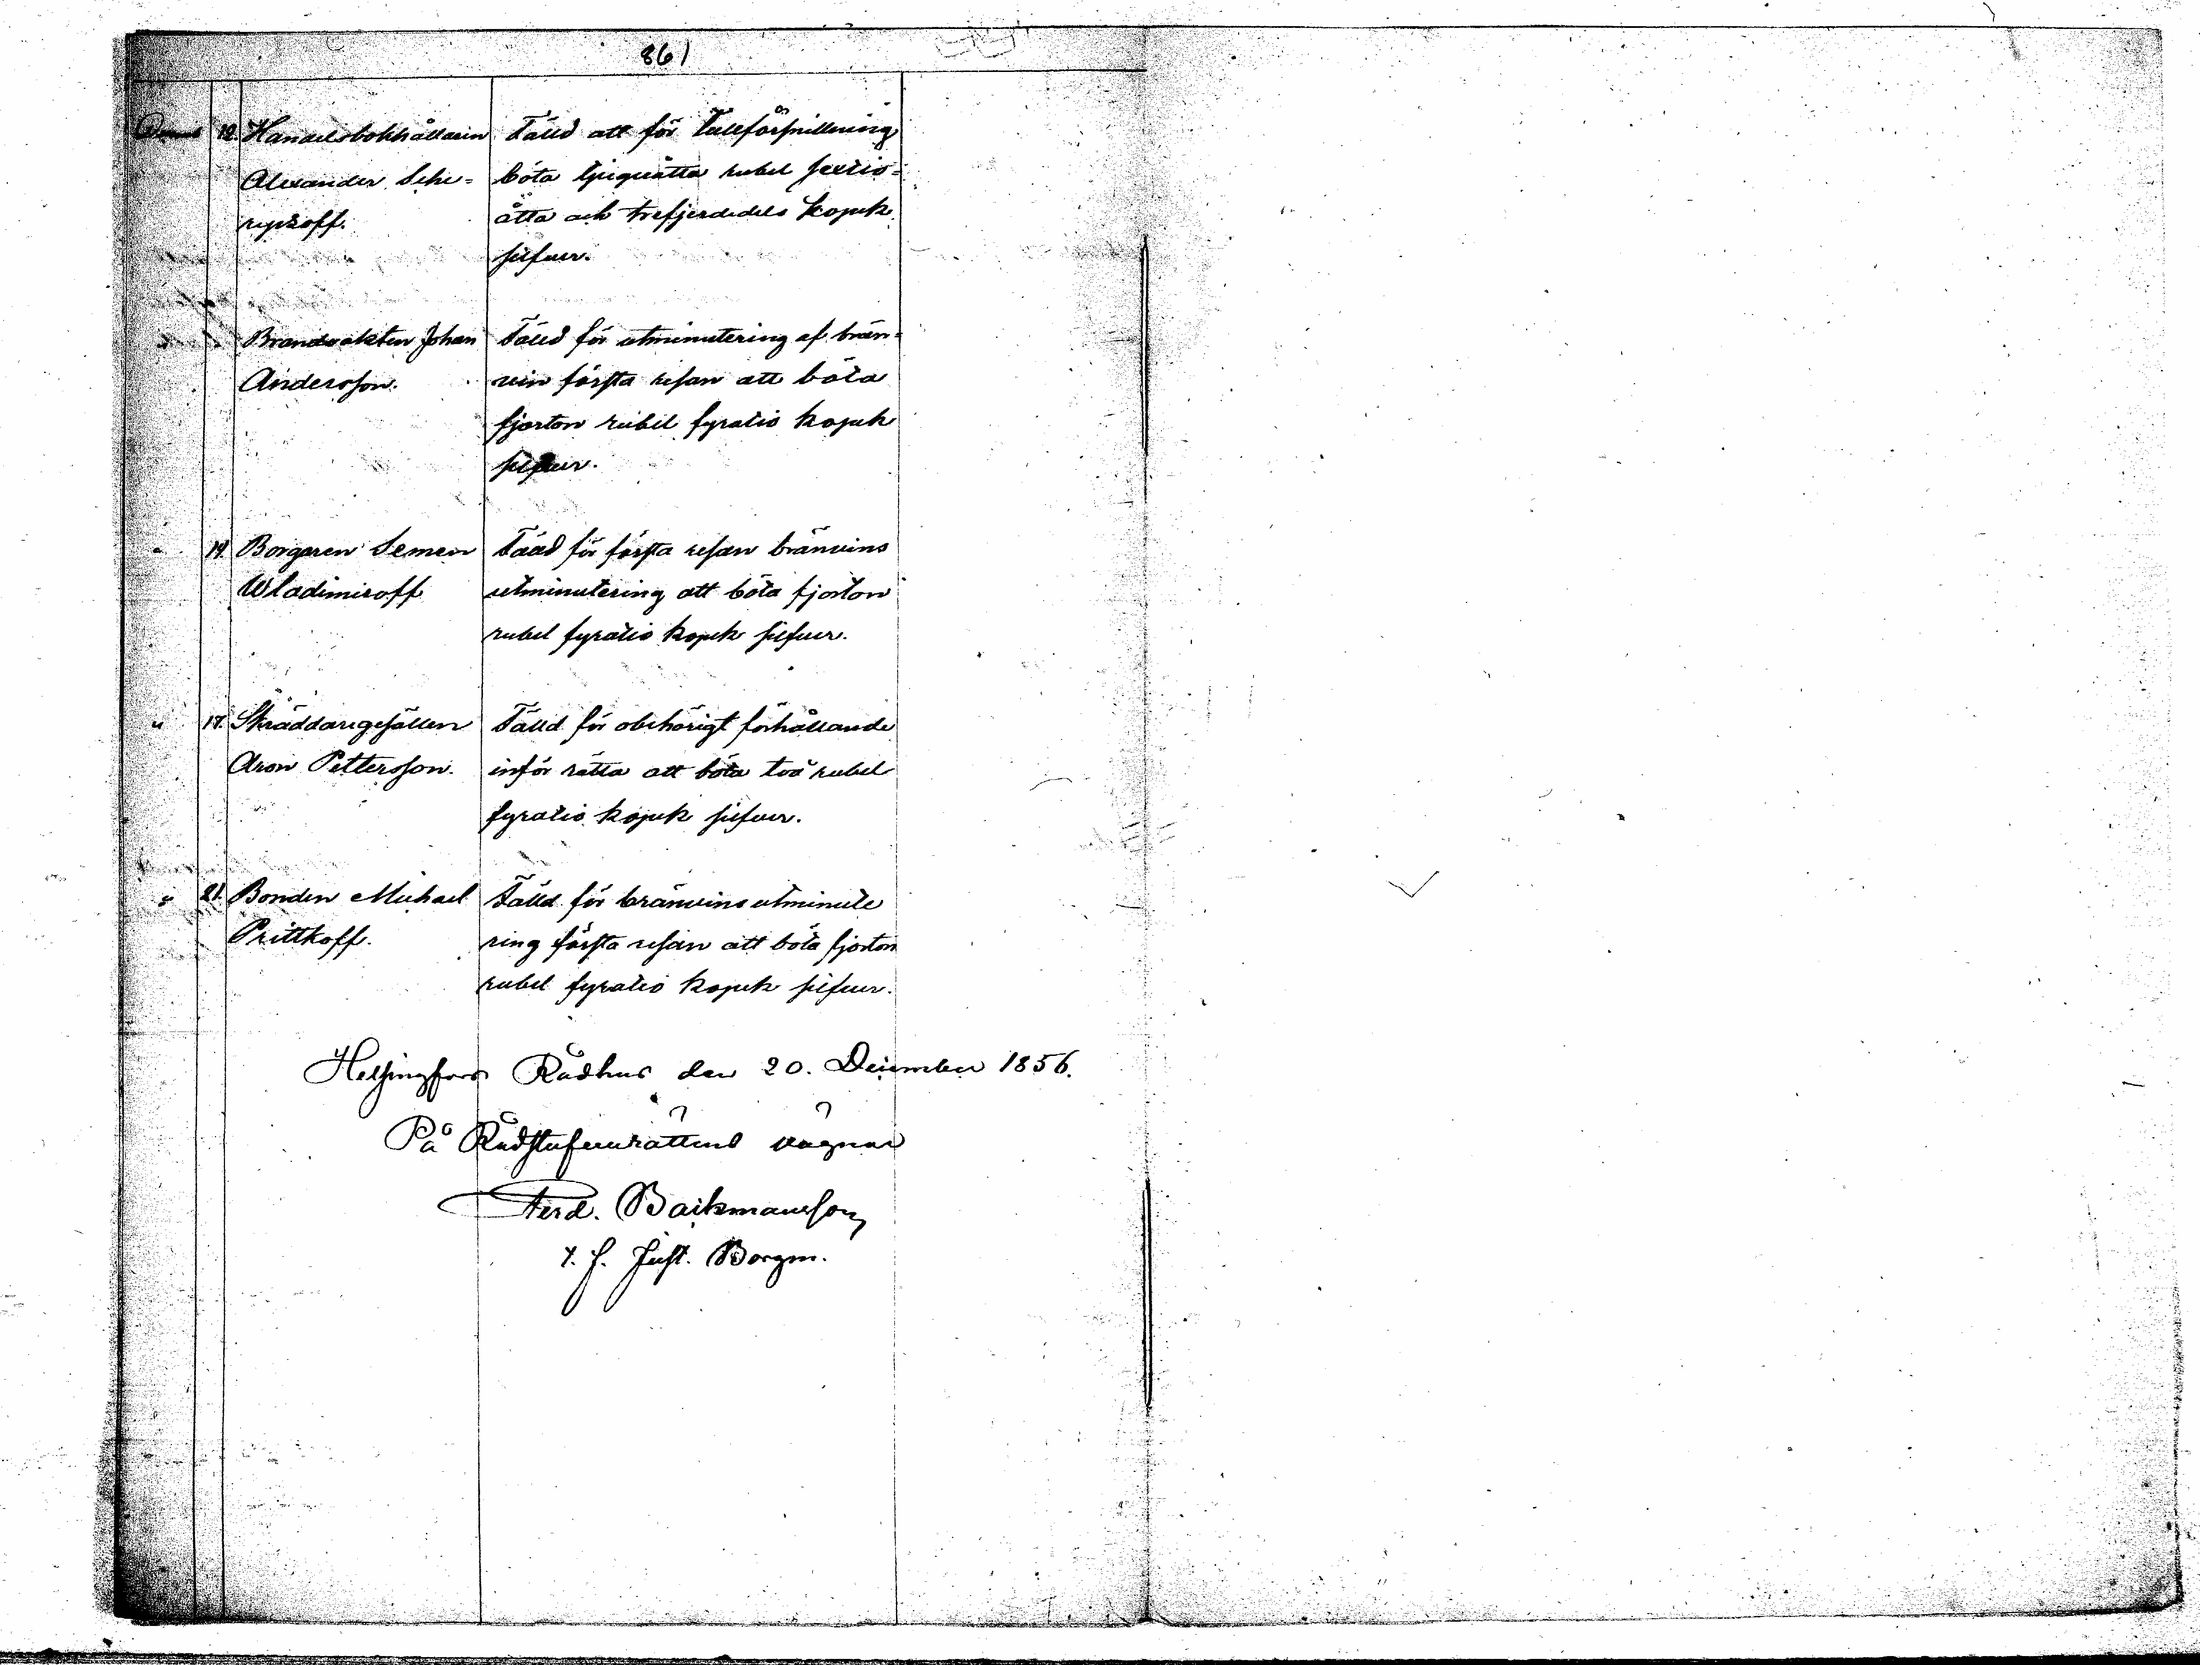 861
12. Handelsbokhållaren Fälld att för Tullförsnillning
Alexander Sche= böta tjuguåtta rubel sextio=
repkoff. åtta och trefjerdedels kopek
silfver.
Brandvakten Johan Fälld för utminutering af brän=
Andersson. vin första resan att böta
fjorton rubel fyratio kopek
silfver.
" 14. Borgaren Semen Fälld för första resan bränvins
Wladimiroff utminutering att böta fjorton
rubel fyratio kopek silfver.
" 17. Skräddaregesällen Fälld för obehörigt förhållande
Aron Pettersson. inför rätta att böta två rubel
fyratio kopek silfver.
" 21. Bonden Michael Fälld för bränvins utminute
Prittkoff. ring första resan att böta fjorton
rubel fyratio kopek silfver.
Helsingfors Rådhus den 20. December 1856.
På Rådstufvurättens vägnar
Ferd. Backmansson
t. f. Just. Borgm.